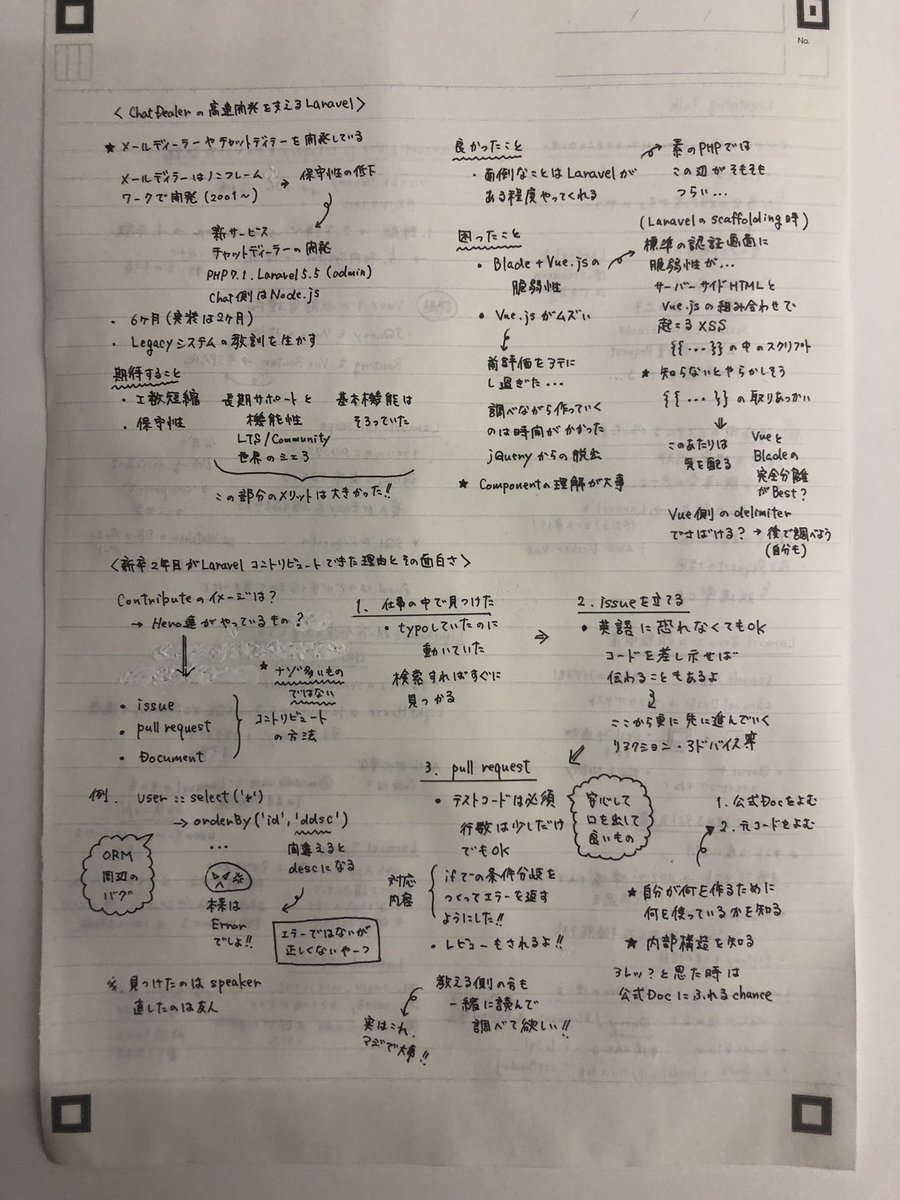 No.
< ChatDealerの高速開発を支えるLaravel >
★ メールディーラーやチャットディーラーを開発している
メールディラーはノンフレーム
ワークで開発(2001〜)
→ 保守性の低下
新サービス
チャットディーラーの開発
PHP7.1. Laravel5.5 (admin)
Chat側はNode.js
・ 6ヶ月(実装は2ヶ月)
・ Legacyシステムの教訓を生かす
期待すること
・ 工数短縮
・ 保守性
長期サポートと
機能性
LTS/Community
世界のシェア
基本機能は
そろっていた
この部分のメリットは大きかった!!
良かったこと
・ 面倒なことはLaravelが
ある程度やってくれる
素のPHPでは
この辺がそもそも
つらい…
困ったこと
・ Blade + Vue.jsの
脆弱性
(Laravelのscaffolding時)
標準の認証画面に
脆弱性が…
サーバーサイドHTMLと
Vue.jsの組み合わせで
起こるXSS
{{…}}の中のスクリプト
★ 知らないとやらかしそう
{{…}}の取りあつかい
⇓
このあたりは
気を配る
Vueと
Bladeの
完全分離
がBest?
Vue側のdelimiter
でさばける? → 後で調べよう
(自分も)
・ Vue.jsがムズい
↓
前評価を
し過ぎた…
調べながら作っていく
のは時間がかかった
jQueryからの脱出
★ Componentの理解が大事
<新卒2年目がLaravel コントリビュートできた理由とその面白さ>
Contributeのイメージは?
→ Hero達がやっているもの?
★ ナゾ多いもの
ではない
・ issue
・ pull request
・ Document
コントリビュート
の方法
例. user :: select('*')
→ orderBy('id','ddsc')
…
ORM
周辺の
バグ
間違えると
descになる
本来は
Error
でしょ!!
エラーではないが
正しくないやーつ
※ 見つけたのは speaker
直したのは友人
1. 仕事の中で見つけた
・ typoしていたのに
動いていた
検索すればすぐに
見つかる
⇒
2. issueを立てる
・ 英語に恐れなくてもOK
コードを差し示せば
伝わることもあるよ
ここから更に先に進んでいく
リアクション・アドバイス等
3. pull request
・ テストコードは必須
行数は少しだけ
でもOK
安心して
口を出して
良いもの
対応
内容
ifでの条件分岐を
つくってエラーを返す
ようにした!!
・ レビューもされるよ!!
教える側の方も
一緒に読んで
調べて欲しい!!
実はこれ、
マジで大事!!
1. 公式Docをよむ
2. 元コードをよむ
★ 自分が何を作るために
何を使っているかを知る
★ 内部構造を知る
アレッ?と思た時は
公式Docにふれるchance